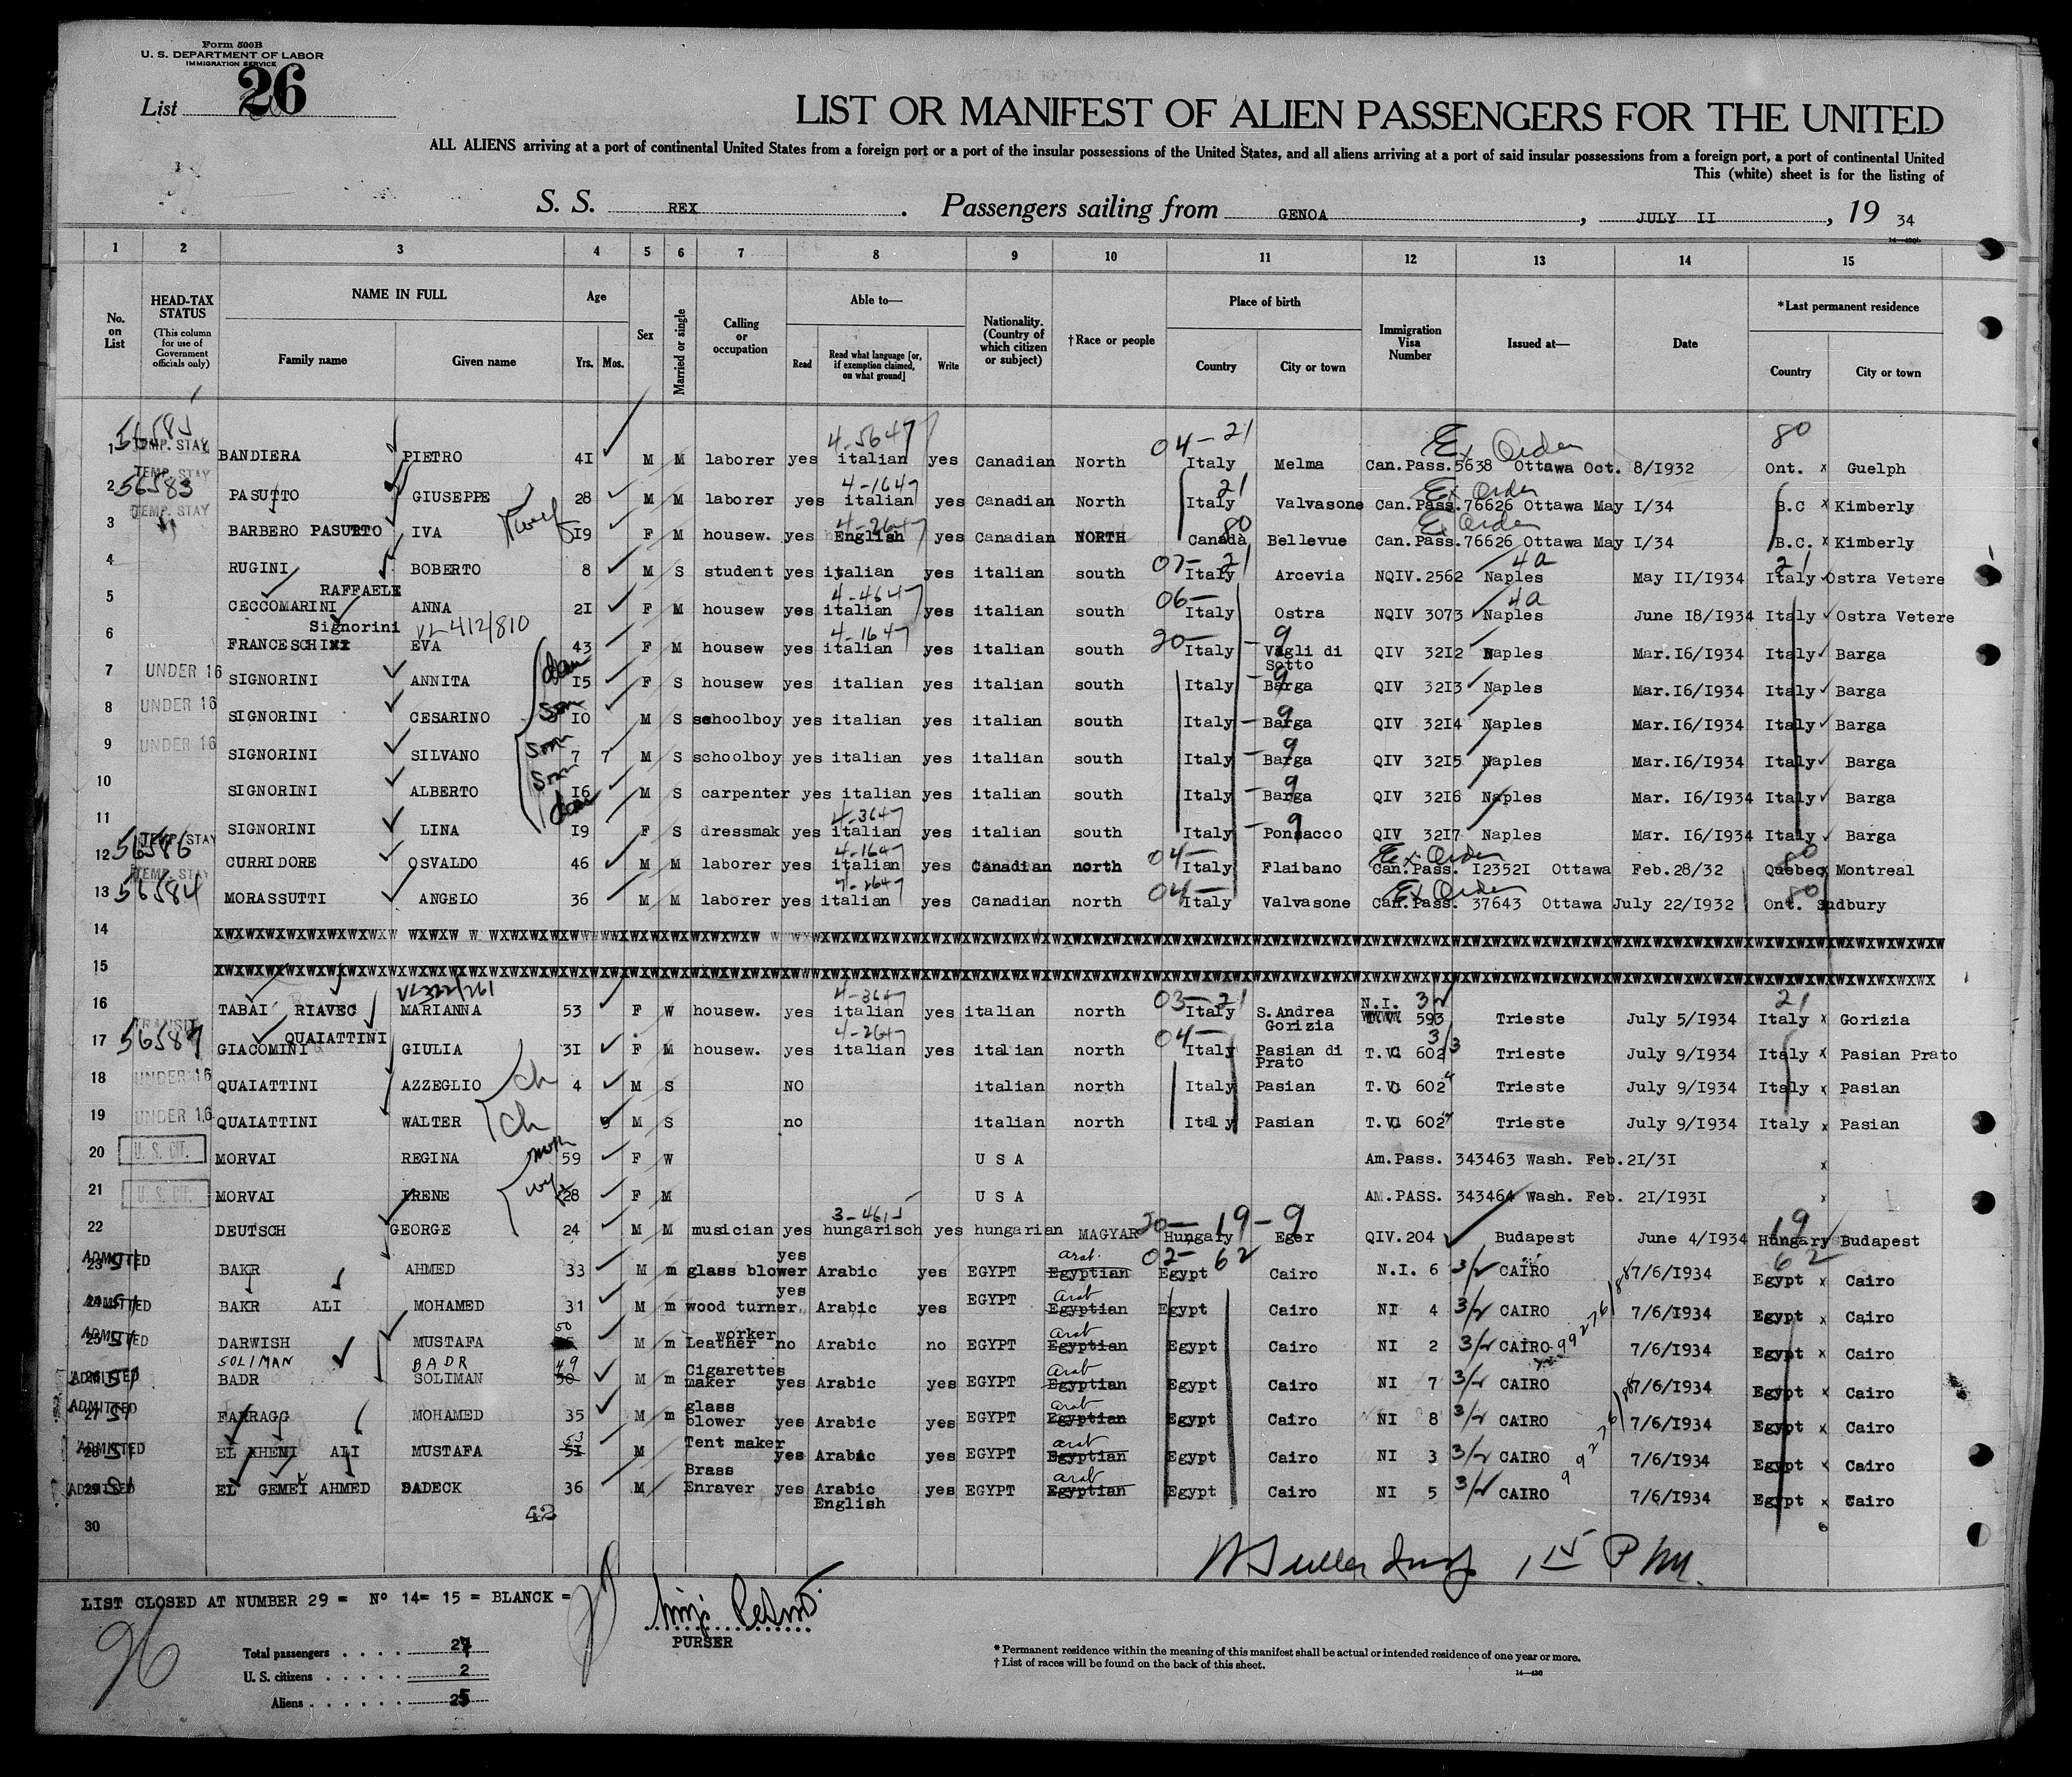 Form 500B
U. S. DEPARTMENT OF LABOR
IMMIGRATION SERVICE
List 26
LIST OR MANIFEST OF ALIEN PASSENGERS FOR THE UNITED
ALL ALIENS arriving at a port of continental United States from a foreign port or a port of the insular possessions of the United States, and all aliens arriving at a port of said insular possessions from a foreign port, a port of continental United
This (white) sheet is for the listing of
S. S. REX. Passengers sailing from GENOA, JULY II, 19 34
1 2 3 4 5 6 7 8 9 10 11 12 13 14 15
No. on List
HEAD-TAX STATUS (This column for use of Government officials only)
NAME IN FULL Family name Given name
Age Yrs. Mos.
Sex
Married or single
Calling or occupation
Able to— Read Read what language [or, if exemption claimed, on what ground] Write
Nationality. (Country of which citizen or subject)
†Race or people
Place of birth Country City or town
Immigration Visa Number
Issued at—
Date
*Last permanent residence Country City or town
56585 4-5647 04-21 Ex Order 80
1 TEMP. STAY BANDIERA PIETRO 4I M M laborer yes italian yes Canadian North Italy Melma Can.Pass.5638 Ottawa Oct. 8/I932 Ont. x Guelph
TEMP. STAY 56583 4-1647 21 Ex Order
2 PASUTTO GIUSEPPE 28 M M laborer yes italian yes Canadian North Italy Valvasone Can.Pass.76626 Ottawa May I/34 B.C x Kimberly
TEMP. STAY wife 4-2647 80 Ex Order
3 BARBERO PASUTTO IVA I9 F M housew. yes English yes Canadian NORTH Canada Bellevue Can.Pass.76626 Ottawa May I/34 B.C. x Kimberly
07-21 4a 21
4 RUGINI BOBERTO 8 M S student yes italian yes italian south Italy Arcevia NQIV.2562 Naples May II/I934 Italy Ostra Vetere
RAFFAELE 4-4647 06- 4a
5 CECCOMARINI ANNA 2I F M housew yes italian yes italian south Italy Ostra NQIV 3073 Naples June I8/I934 Italy Ostra Vetere
Signorini VL412/810 4-1647 20- 9
6 FRANCESCHI EVA 43 F M housew yes italian yes italian south Italy Vagli di Sotto QIV 32I2 Naples Mar.I6/I934 Italy Barga
7 UNDER 16 SIGNORINI ANNITA dau I5 F S housew yes italian yes italian south Italy - 9 Barga QIV 32I3 Naples Mar.I6/I934 Italy Barga
8 UNDER 16 SIGNORINI CESARINO son I0 M S schoolboy yes italian yes italian south Italy - 9 Barga QIV 32I4 Naples Mar.I6/I934 Italy Barga
9 UNDER 16 SIGNORINI SILVANO son 7 7 M S schoolboy yes italian yes italian south Italy - 9 Barga QIV 32I5 Naples Mar.I6/I934 Italy Barga
10 SIGNORINI ALBERTO son I6 M S carpenter yes italian yes italian south Italy - 9 Barga QIV 32I6 Naples Mar. I6/I934 Italy Barga
dau 4-3647
11 SIGNORINI LINA I9 F S dressmak yes italian yes italian south Italy - 9 Ponsacco QIV 32I7 Naples Mar. I6/I934 Italy Barga
TEMP. STAY 56586 4-1647 04- Ex Order 80
12 CURRIDORE OSVALDO 46 M M laborer yes italian yes Canadian north Italy Flaibano Can.Pass. I2352I Ottawa Feb.28/32 Quebec Montreal
TEMP. STAY 56584 4-2647 04- Ex Order 80
13 MORASSUTTI ANGELO 36 M M laborer yes italian yes Canadian north Italy Valvasone Can.Pass. 37643 Ottawa July 22/I932 Ont. Sudbury
14
15
VL322/261 4-3647 03-21 3/2 21
16 TABAI RIAVEC MARIANNA 53 F W housew. yes italian yes italian north Italy S. Andrea Gorizia N.I. 593 Trieste July 5/I934 Italy x Gorizia
TRANSIT 56587 QUAIATTINI 4-2647 04- 3/3
17 GIACOMINI GIULIA 3I F M housew. yes italian yes italian north Italy Pasian di Prato T.V. 602 Trieste July 9/I934 Italy x Pasian Prato
18 UNDER 16 QUAIATTINI AZZEGLIO ch 4 M S NO italian north Italy Pasian T.V. 602 Trieste July 9/I934 Italy x Pasian
19 UNDER 16 QUAIATTINI WALTER ch 9 M S no italian north Italy Pasian T.V. 602 Trieste July 9/I934 Italy x Pasian
20 U. S. CIT. MORVAI REGINA 59 F W U S A Am.Pass. 343463 Wash. Feb.2I/3I x
21 U. S. CIT. MORVAI IRENE wife 28 F M U S A AM.PASS. 343464 Wash. Feb. 2I/I93I x
22 DEUTSCH GEORGE 24 M M musician yes hungarisch yes hungarian MAGYAR 20- 19 - 9 Hungary Eger QIV.204 Budapest June 4/I934 19 Hungary Budapest
ADMITTED yes arab. 02- 62 62
23 BAKR AHMED 33 M m glass blower Arabic yes EGYPT Egyptian Egypt Cairo N.I. 6 3/2 CAIRO 7/6/I934 Egypt x Cairo
ADMITTED yes Arab
24 BAKR ALI MOHAMED 31 M m wood turner Arabic yes EGYPT Egyptian Egypt Cairo NI 4 3/2 CAIRO 7/6/I934 Egypt x Cairo
ADMITTED 50 worker Arab 99276/88
25 DARWISH MUSTAFA M m Leather no Arabic no EGYPT Egyptian Egypt Cairo NI 2 3/2 CAIRO 7/6/I934 Egypt x Cairo
SOLIMAN BADR 49 Cigarettes Arab
ADMITTED 26 BADR SOLIMAN 50 M m maker yes Arabic yes EGYPT Egyptian Egypt Cairo NI 7 3/2 CAIRO 7/6/I934 Egypt x Cairo
ADMITTED glass arab
27 FARRAGG MOHAMED 35 M m blower yes Arabic yes EGYPT Egyptian Egypt Cairo NI 8 3/2 CAIRO 7/6/I934 Egypt x Cairo
ADMITTED 53 Tent maker arab 99276/88
28 EL KHEMI ALI MUSTAFA 51 M yes Arabic yes EGYPT Egyptian Egypt Cairo NI 3 3/2 CAIRO 7/6/I934 Egypt x Cairo
ADMITTED Brass arab
29 EL GEMEI AHMED SADECK 36 M Enraver yes Arabic English yes EGYPT Egyptian Egypt Cairo NI 5 3/2 CAIRO 7/6/I934 Egypt x Cairo
42
30
1 15 P M.
LIST CLOSED AT NUMBER 29 = Nº 14= 15 = BLANCK =
PURSER
96
Total passengers . . . . 27
U. S. citizens . . . . . . 2
Aliens . . . . . . 25
* Permanent residence within the meaning of this manifest shall be actual or intended residence of one year or more.
† List of races will be found on the back of this sheet.
14—430